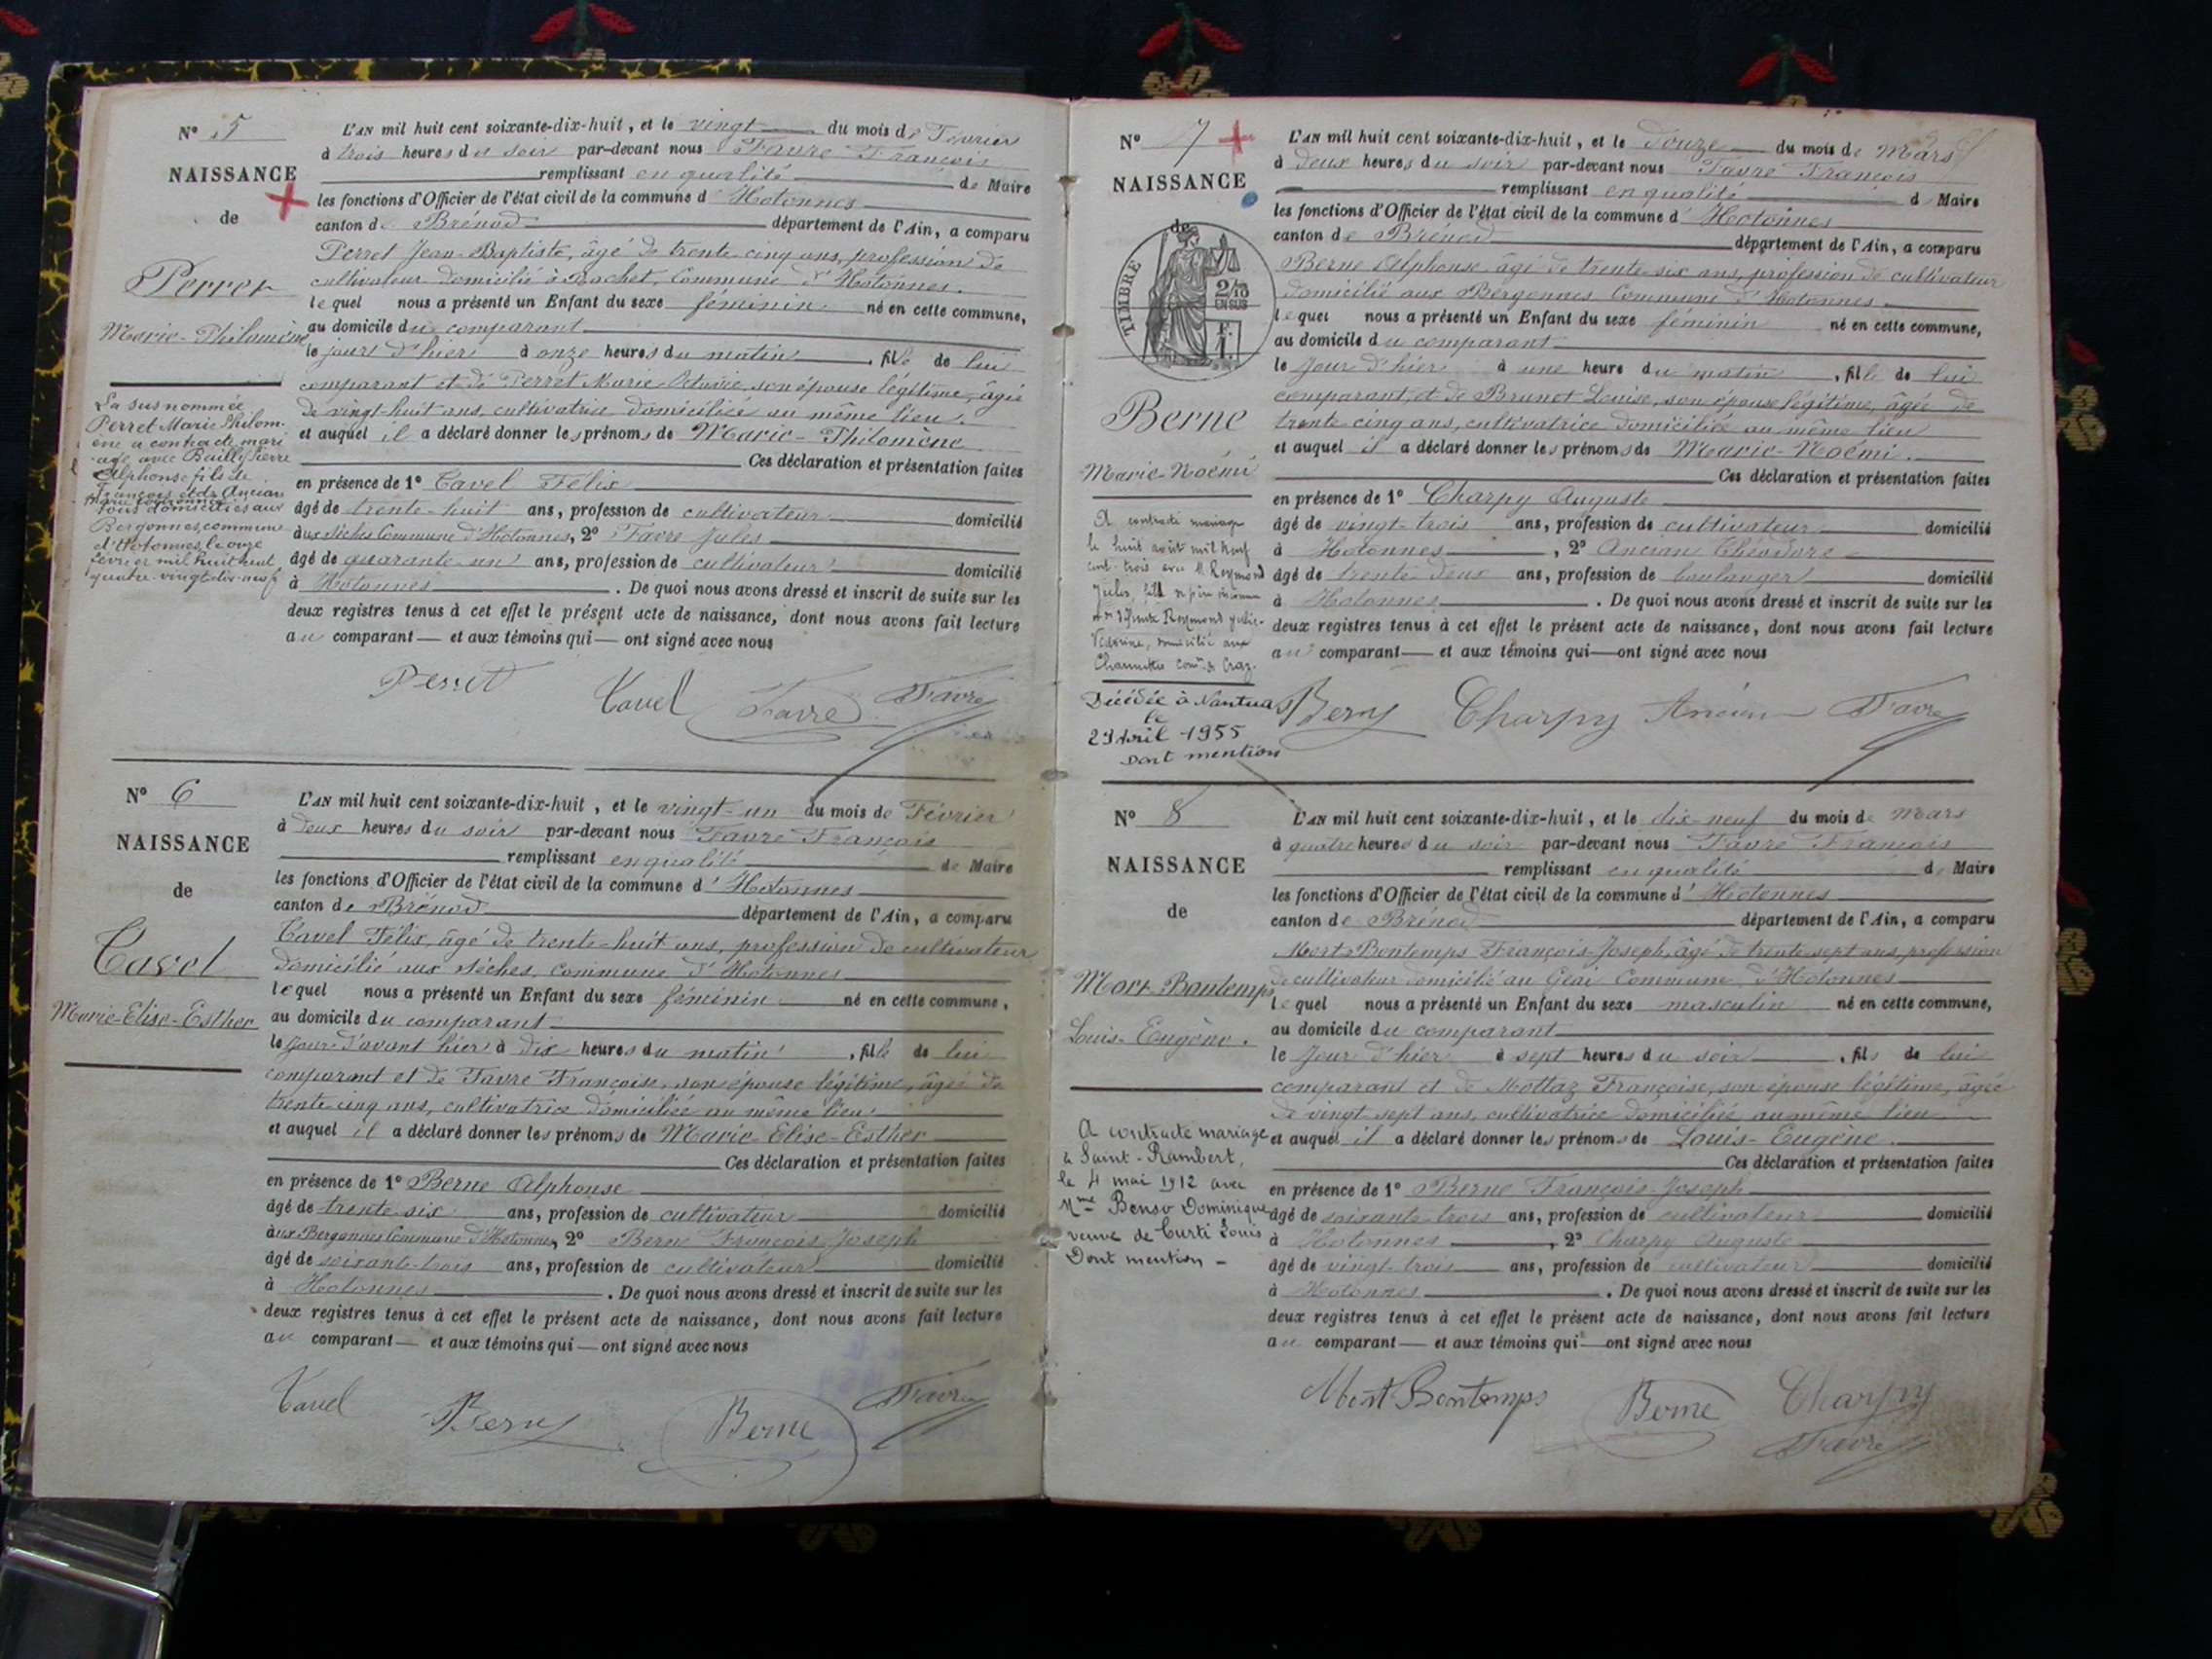 N° 5
NAISSANCE
de
Perret
Marie-Philomène
La susnommée
Perret Marie Philom-
ène a contracté mari
age avec Bailly Pierre
Alphonse fils de
François et de Ancian
Marie
tous domiciliés aux
Bergonnes, commune
d'Hotonnes, le onze
février mil huit cent
quatre-vingt-dix-neuf
L'AN mil huit cent soixante-dix-huit, et le vingt du mois de Février
à trois heures du soir par-devant nous Favre François
remplissant en qualité de Maire
les fonctions d'Officier de l'état civil de la commune d'Hotonnes
canton de Brénod département de l'Ain, a comparu
Perret Jean-Baptiste, âgé de trente-cinq ans, profession de
cultivateur domicilié à Rochet, Commune d'Hotonnes.
lequel nous a présenté un Enfant du sexe féminin né en cette commune,
au domicile du comparant
le jour d'hier à onze heures du matin, fille de lui
comparant et de Perret Marie-Octavie, son épouse légitime, âgée
de vingt-huit ans, cultivatrice domiciliée au même lieu.
et auquel il a déclaré donner les prénoms de Marie-Philomène
Ces déclaration et présentation faites
en présence de 1° Tavel Félix
âgé de trente-huit ans, profession de cultivateur domicilié
aux Sèches Commune d'Hotonnes, 2° Favre Jules
âgé de quarante-un ans, profession de cultivateur domicilié
à Hotonnes. De quoi nous avons dressé et inscrit de suite sur les
deux registres tenus à cet effet le présent acte de naissance, dont nous avons fait lecture
au comparant et aux témoins qui ont signé avec nous
Perret Tavel Favre Favre
N° 6
NAISSANCE
de
Tavel
Marie-Elise-Esther
L'AN mil huit cent soixante-dix-huit, et le vingt-un du mois de Février
à deux heures du soir par-devant nous Favre François
remplissant en qualité de Maire
les fonctions d'Officier de l'état civil de la commune d'Hotonnes
canton de Brénod département de l'Ain, a comparu
Tavel Félix, âgé de trente-huit ans, profession de cultivateur
domicilié aux Sèches, commune d'Hotonnes
lequel nous a présenté un Enfant du sexe féminin né en cette commune,
au domicile du comparant
le Jour d'avant hier à dix heures du matin, fille de lui
comparant et de Favre Françoise, son épouse légitime, âgée de
trente-cinq ans, cultivatrice domiciliée au même lieu.
et auquel il a déclaré donner les prénoms de Marie-Elise-Esther
Ces déclaration et présentation faites
en présence de 1° Berne Alphonse
âgé de trente-six ans, profession de cultivateur domicilié
aux Bergonnes Commune d'Hotonnes, 2° Berne François-Joseph
âgé de soixante-trois ans, profession de cultivateur domicilié
à Hotonnes. De quoi nous avons dressé et inscrit de suite sur les
deux registres tenus à cet effet le présent acte de naissance, dont nous avons fait lecture
au comparant et aux témoins qui ont signé avec nous
Tavel Berne Berne Favre
N° 7
NAISSANCE
de
TIMBRE
2/10
EN SUS
Berne
Marie-Noémi
A contracté mariage
le huit août mil neuf
cent trois avec M. Reymond
Jules, fils
Reymond Julie-
Victorine, domicilié aux
Charmettes com. de Craz.
Décédée à Nantua
le
29 Avril 1955
Dont mention
L'AN mil huit cent soixante-dix-huit, et le douze du mois de Mars
à deux heures du soir par-devant nous Favre François
remplissant en qualité d Maire
les fonctions d'Officier de l'état civil de la commune d'Hotonnes
canton de Brénod département de l'Ain, a comparu
Berne Alphonse âgé de trente-six ans, profession de cultivateur
domicilié aux Bergonnes Commune d'Hotonnes.
lequel nous a présenté un Enfant du sexe féminin né en cette commune,
au domicile du comparant
le Jour d'hier à une heure du matin, fille de lui
comparant, et de Brunet Louise, son épouse légitime, âgée de
trente cinq ans, cultivatrice domiciliée au même lieu
et auquel il a déclaré donner les prénoms de Marie-Noémi.
Ces déclaration et présentation faites
en présence de 1° Charpy Auguste
âgé de vingt-trois ans, profession de cultivateur domicilié
à Hotonnes, 2° Ancian Théodore
âgé de trente-deux ans, profession de boulanger domicilié
à Hotonnes. De quoi nous avons dressé et inscrit de suite sur les
deux registres tenus à cet effet le présent acte de naissance, dont nous avons fait lecture
au comparant et aux témoins qui ont signé avec nous
Berne Charpy Ancian Favre
N° 8
NAISSANCE
de
Mort-Bontemps
Louis-Eugène.
A contracté mariage
à Saint-Rambert,
le 4 mai 1912 avec
Mme Benso Dominique
veuve de Curti Louis
Dont mention -
L'AN mil huit cent soixante-dix-huit, et le dix-neuf du mois de Mars
à quatre heures du soir par-devant nous Favre François
remplissant en qualité de Maire
les fonctions d'Officier de l'état civil de la commune d'Hotonnes
canton de Brénod département de l'Ain, a comparu
Mort-Bontemps François-Joseph, âgé de trente-sept ans, profession
de cultivateur domicilié au Geai Commune d'Hotonnes
lequel nous a présenté un Enfant du sexe masculin né en cette commune,
au domicile du comparant
le Jour d'hier à sept heures du soir, fils de lui
comparant et de Mottaz Françoise, son épouse légitime, âgée
de vingt-sept ans, cultivatrice domiciliée au même lieu
et auquel il a déclaré donner les prénoms de Louis-Eugène.
Ces déclaration et présentation faites
en présence de 1° Berne François-Joseph
âgé de soixante-trois ans, profession de cultivateur domicilié
à Hotonnes, 2° Charpy Auguste
âgé de vingt-trois ans, profession de cultivateur domicilié
à Hotonnes. De quoi nous avons dressé et inscrit de suite sur les
deux registres tenus à cet effet le présent acte de naissance, dont nous avons fait lecture
au comparant et aux témoins qui ont signé avec nous
Mort-Bontemps Berne Charpy
Favre